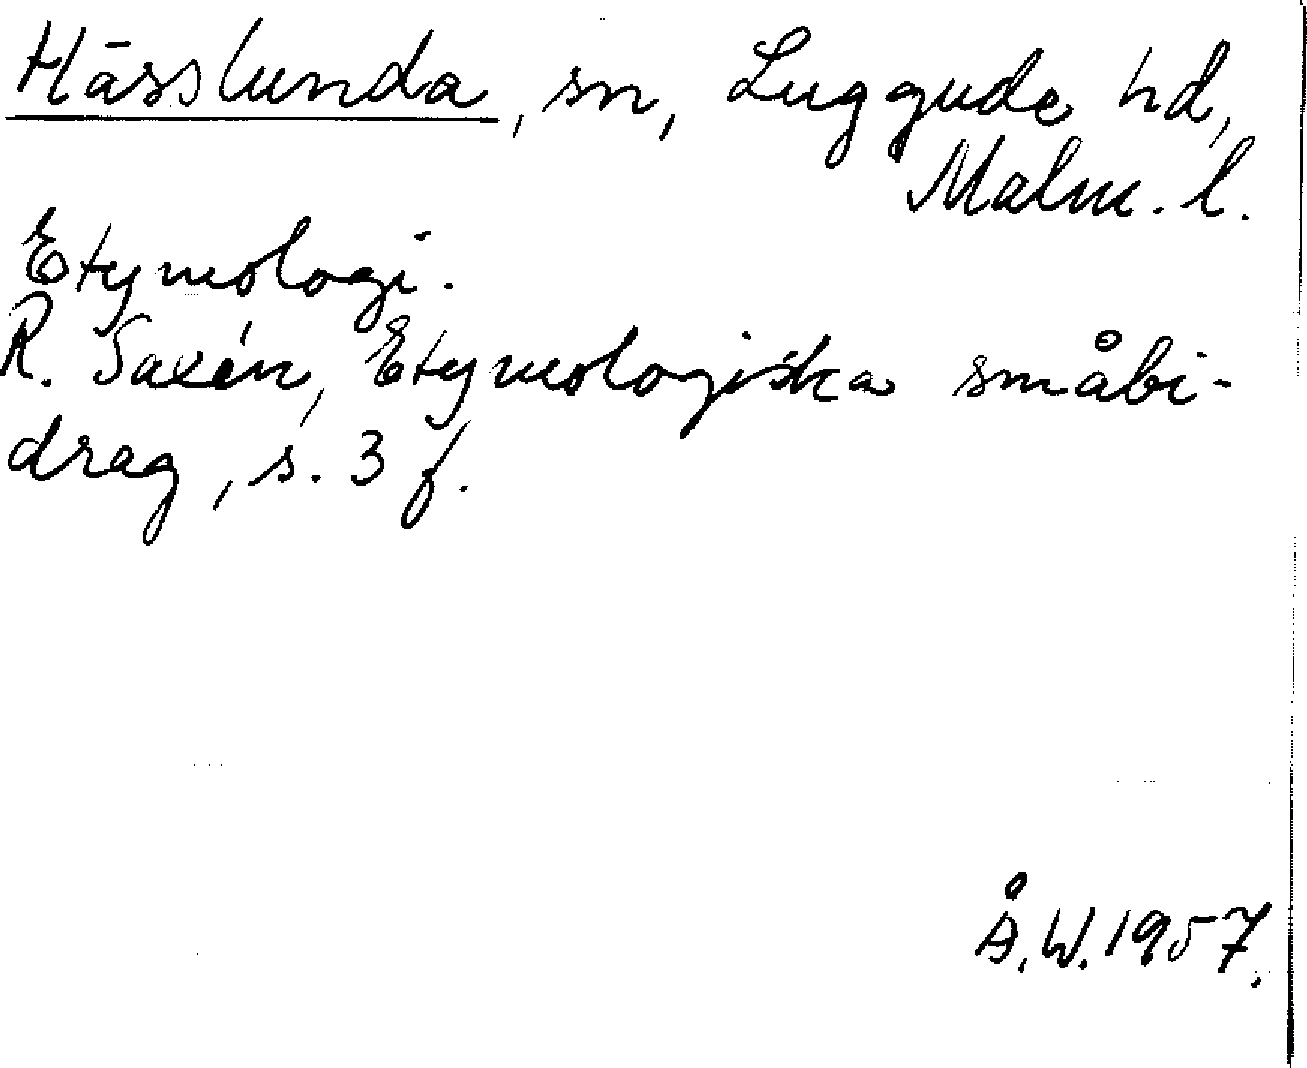 Hässlunda, sn, Luggude hd,
Malm. l.
Etymologi.
R. Saxén, Etymologiska småbi-
drag, s. 3 f.
Å. W. 1957.